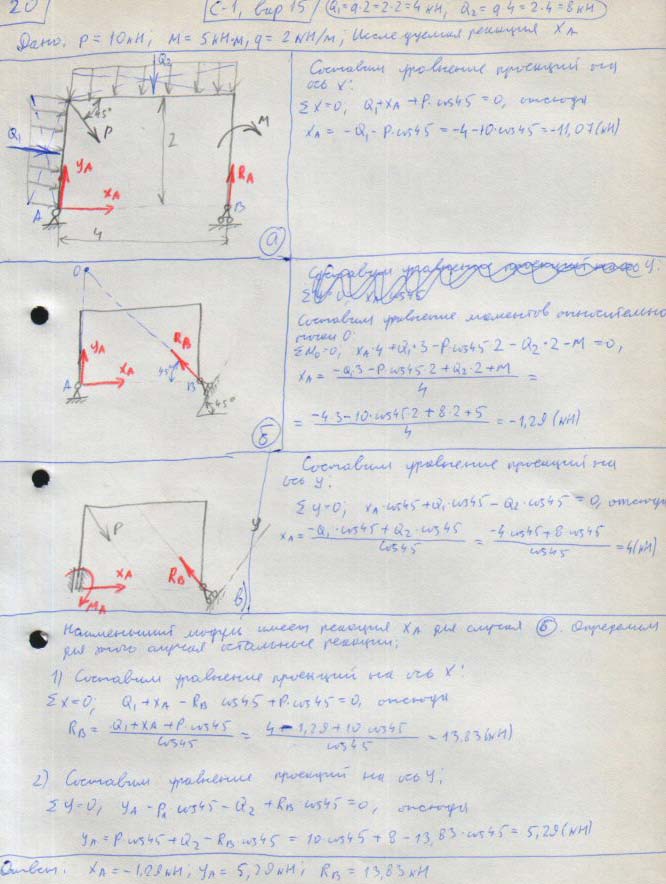 20
С-1, вар 15
Q₁=q·2=2·2=4кН, Q₂=q·4=2·4=8кН
Дано: P=10кН; M=5кН·м, q=2кН/м; Исследуемая реакция XA
Q₂
45°
P
Q₁
YA
XA
A
2
M
RA
B
4
а
Составим уравнение проекций на
ось X:
ΣX=0, Q₁+XA+P·cos45=0, отсюда
XA=-Q₁-P·cos45=-4-10·cos45=-11,07(кН)
O
YA
XA
A
RB
45°
B
45°
б
Составим уравнение проекций на ось Y:
ΣY=0, XA·cos45
Составим уравнение моментов относительно
точки O:
ΣMo=0, XA·4+Q₁·3-P·cos45·2-Q₂·2-M=0,
XA=(-Q₁3-P·cos45·2+Q₂·2+M)/4=
=(-4·3-10·cos45·2+8·2+5)/4=-1,29(кН)
P
XA
MA
RB
y
в)
Составим уравнение проекций на
ось y:
Σy=0; XA·cos45+Q₁·cos45-Q₂·cos45=0, отсюда
XA=(-Q₁·cos45+Q₂·cos45)/cos45=(-4·cos45+8·cos45)/cos45=4(кН)
Наименьший модуль имеет реакция XA для случая б. Определим
для этого случая остальные реакции;
1) Составим уравнение проекций на ось X:
ΣX=0; Q₁+XA-RB cos45+P·cos45=0, отсюда
RB=(Q₁+XA+P·cos45)/cos45=(4-1,29+10cos45)/cos45=13.83(кН)
2) Составим уравнение проекций на ось Y;
ΣY=0, YA-PA·cos45-Q₂+RB·cos45=0, отсюда
YA=P·cos45+Q₂-RB·cos45=10cos45+8-13,83·cos45=5,29(кН)
Ответ: XA=-1,29кН; YA=5,29кН; RB=13,83кН